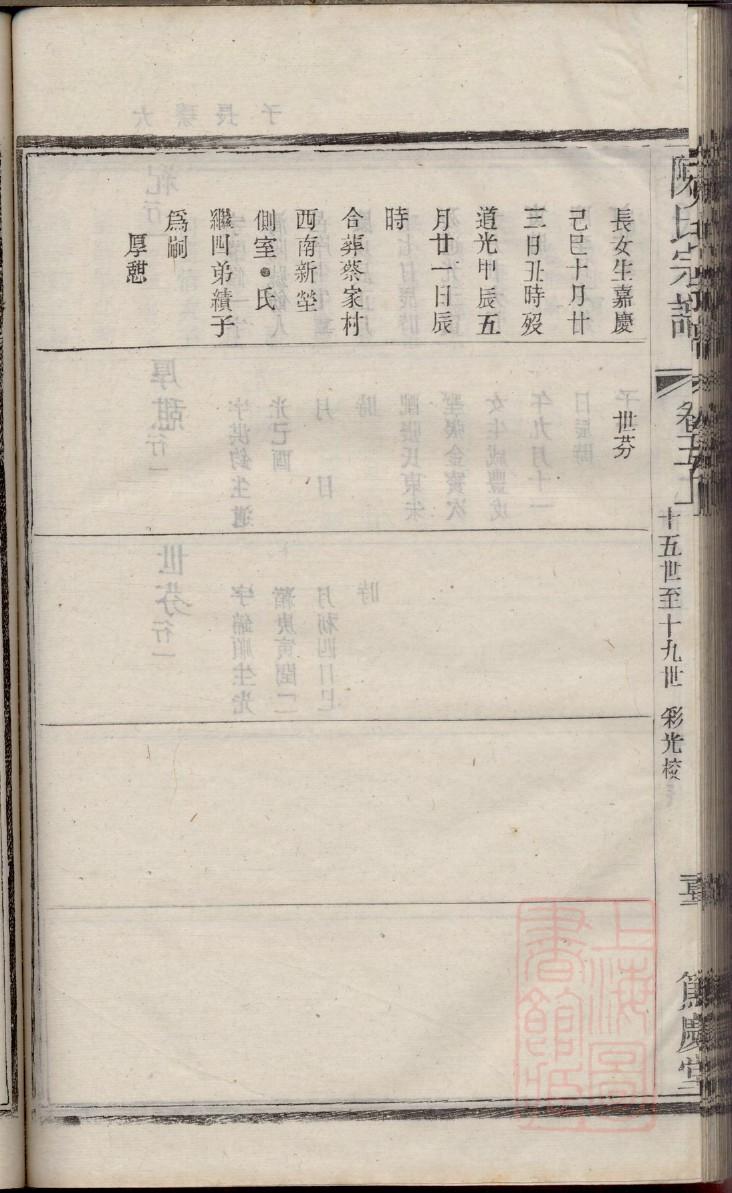 陳氏宗譜
卷五
十五世至十九世 彩光校
篤慶堂
長女生嘉慶
己巳十月廿
三日丑時歿
道光甲辰五
月廿一日辰
時
合葬蔡家村
西南新塋
側室●氏
繼四弟績子
爲嗣
厚憇
世芬
上海圖
書館藏